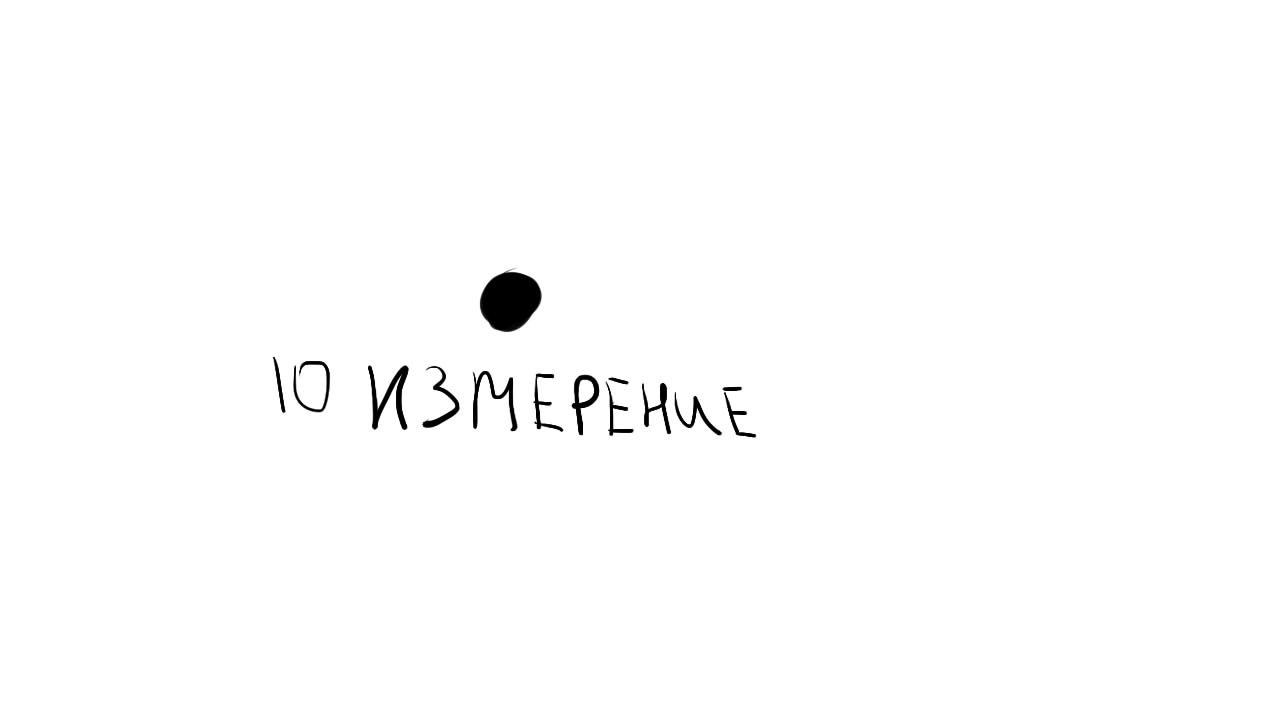 10 ИЗМЕРЕНИЕ